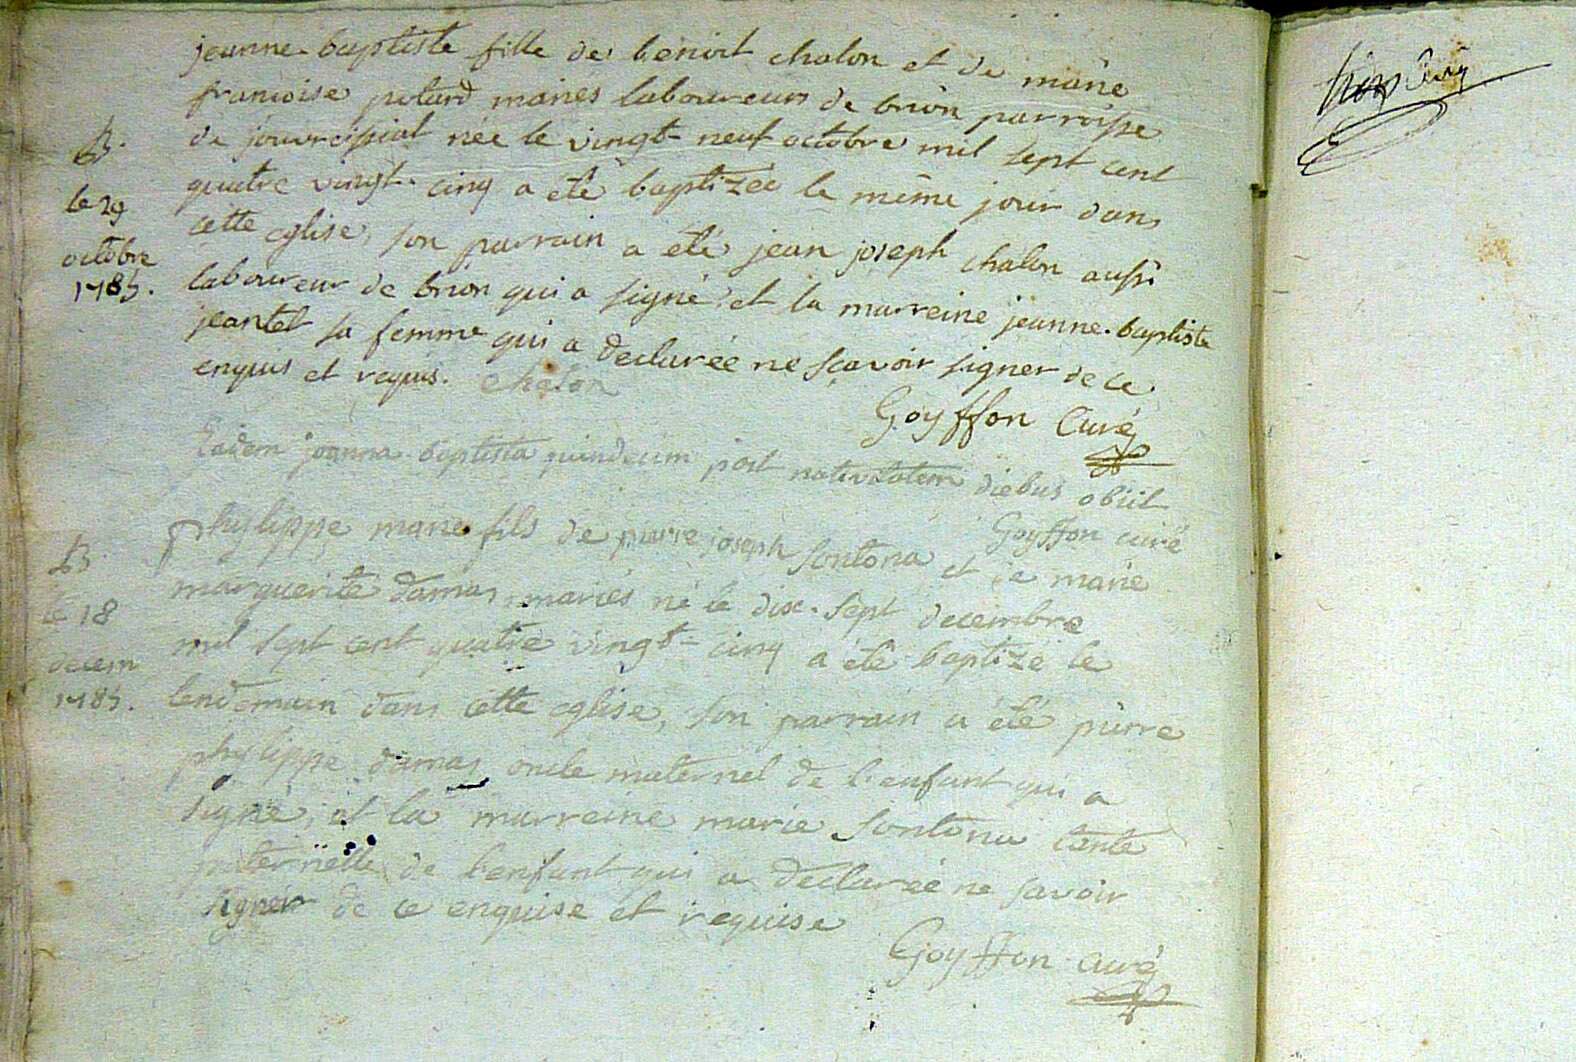 jeanne-baptiste fille de benoit chalon et de marie
francoise potard mariés laboureurs de brion parroisse
B.
de née le vingt neuf octobre mil sept cent
le 29
quatre vingt-cinq a eté baptizée le même jour dans
octobre
cette eglise, son parrain a eté jean joseph chalon aussi
1785.
laboureur de brion qui a signé et la marreine jeanne-baptiste
jeantet sa femme qui a declarée ne sçavoir signer de ce
enquis et requis. chalon
Goyffon Curé
Eadem joanna-baptista quindecim post nativitatem diebus obiit
Goyffon curé
B.
phylippe marie fils de pierre joseph fontona et de marie
le 18
marguerite damas mariés né le dix-sept decembre
decem
mil sept cent quatre vingt-cinq a eté baptizé le
1785.
lendemain dans cette eglise, son parrain a été pierre
phylippe damas oncle maternel de l'enfant qui a
signé, et la marreine marie fontona tante
paternelle de l'enfant qui a declarée ne savoir
signer de ce enquise et requise
Goyffon curé